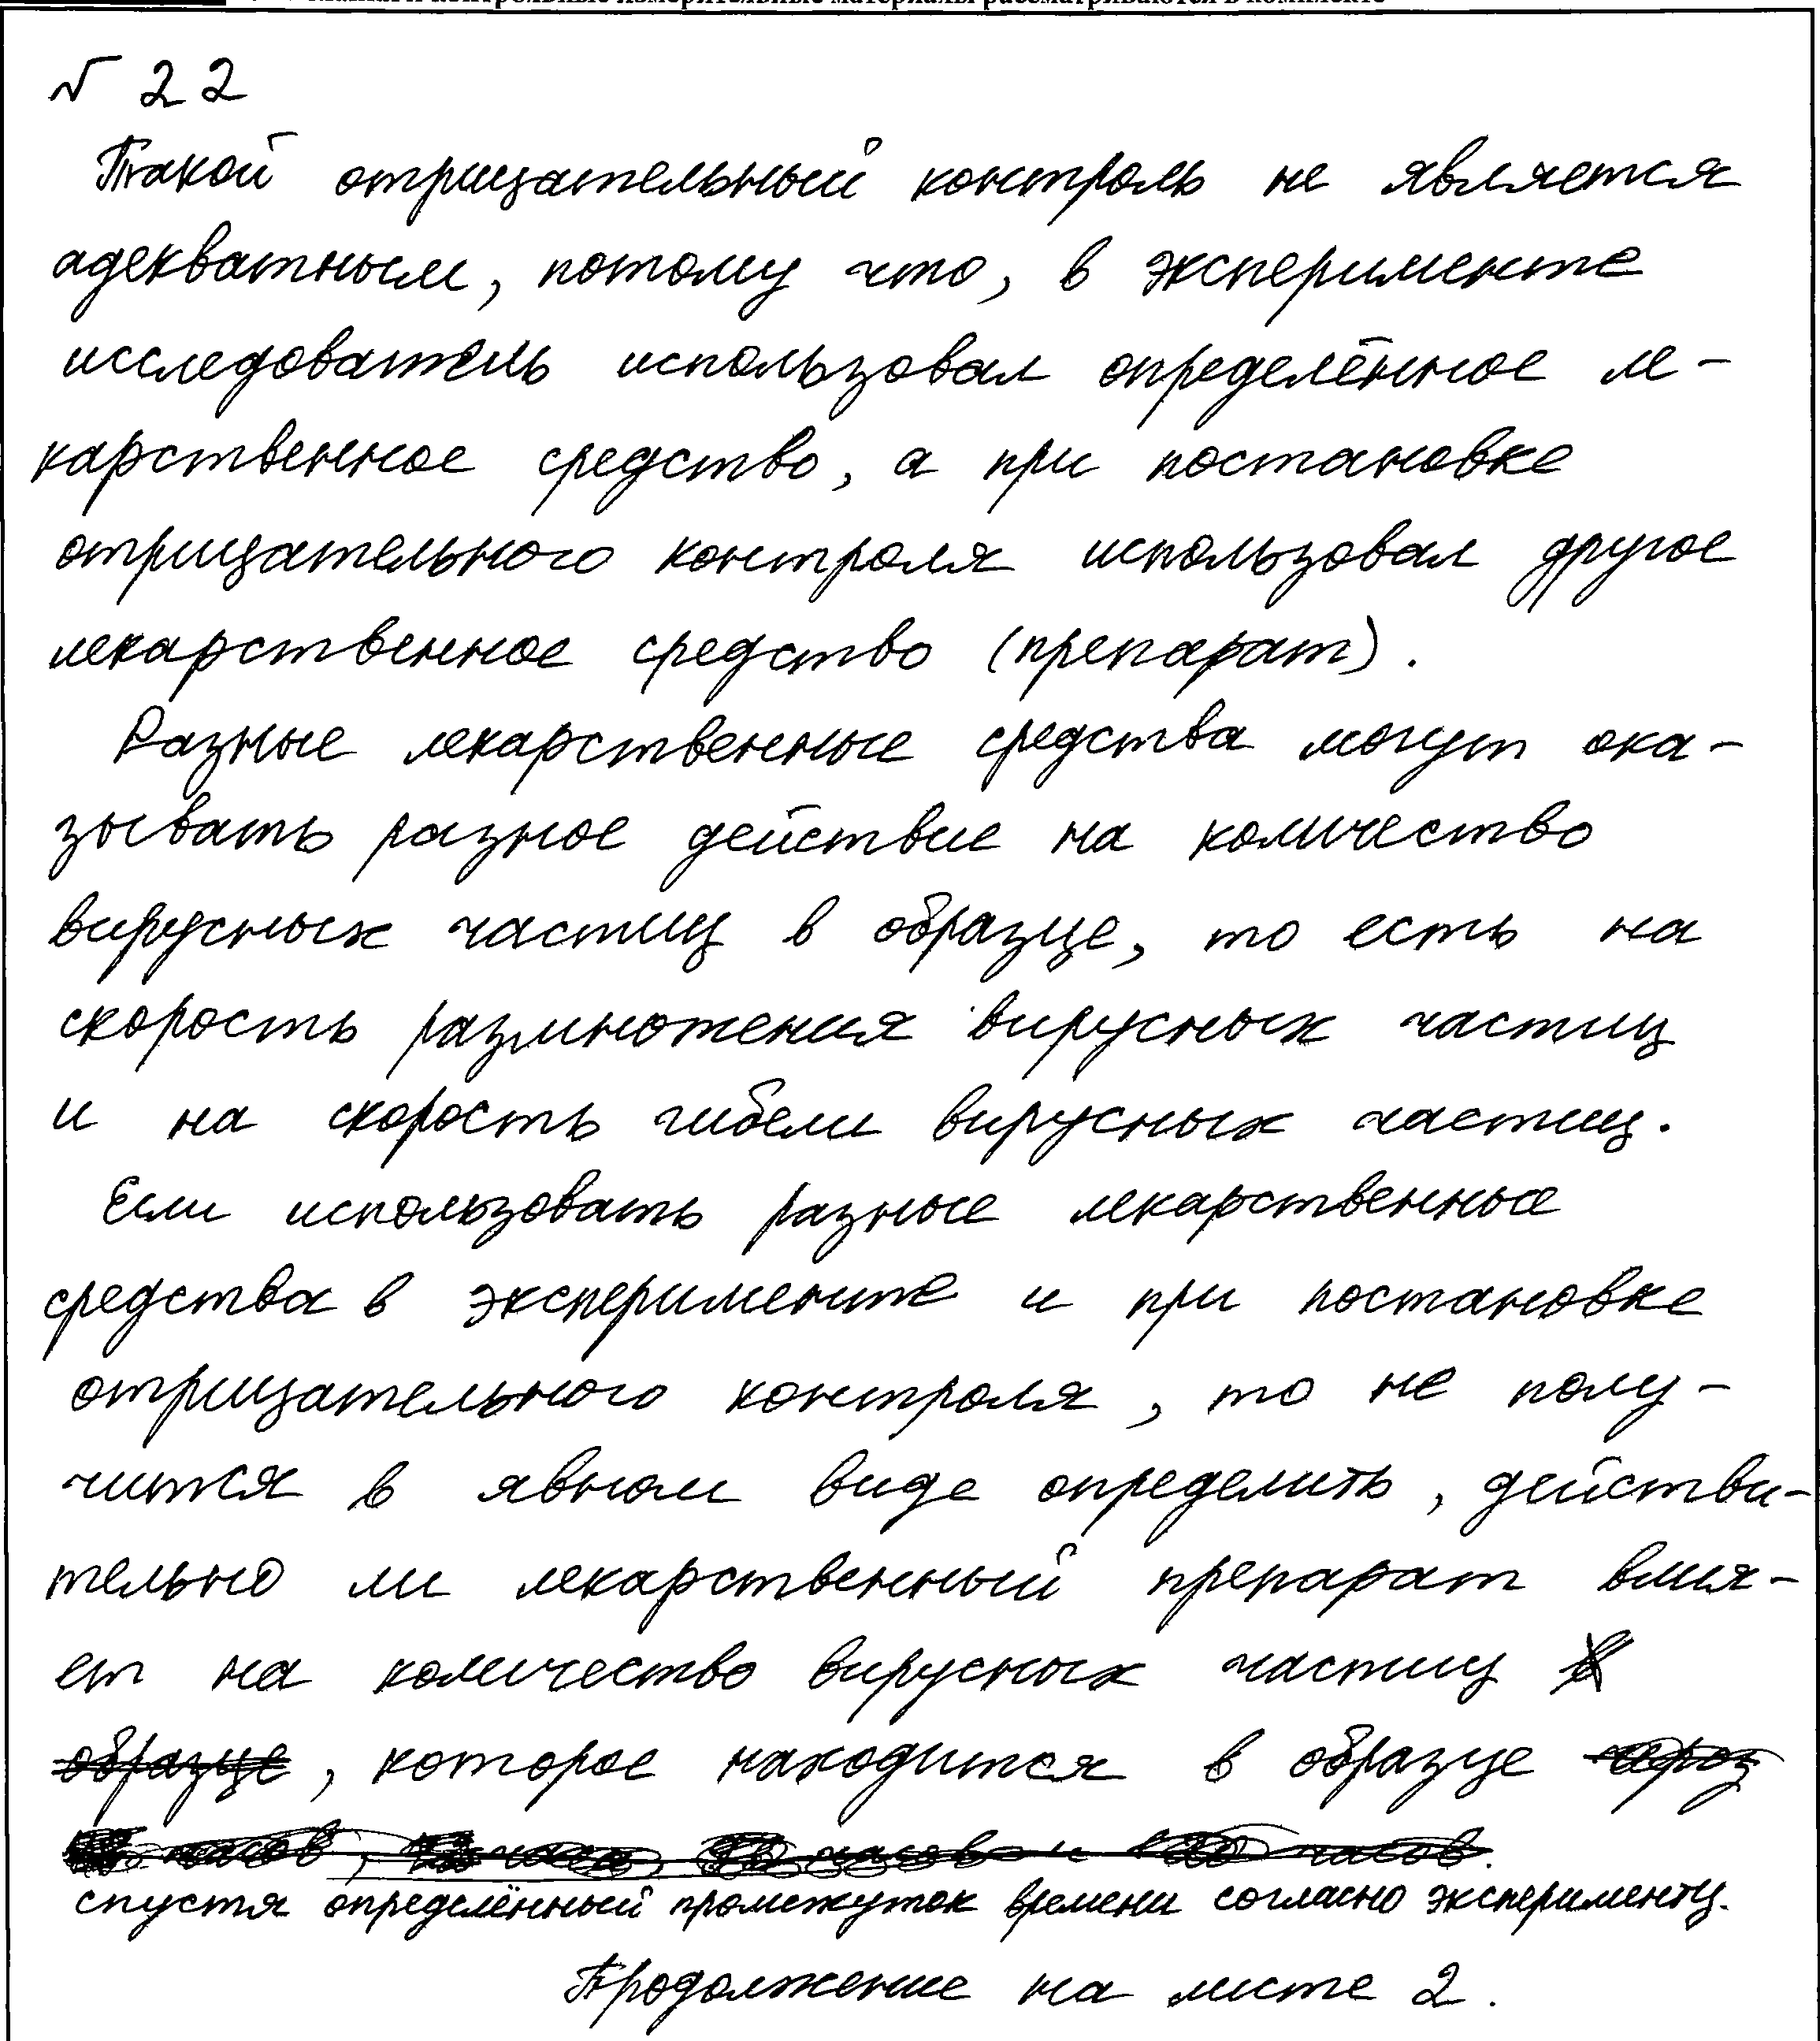 № 22
Такой отрицательный контроль не является
адекватным, потому что, в эксперименте
исследователь использовал определённое ле-
карственное средство, а при постановке
отрицательного контроля использовал другое
лекарственное средство (препарат).
Разные лекарственные средства могут ока-
зывать разное действие на количество
вирусных частиц в образце, то есть на
скорость размножения вирусных частиц
и на скорость гибели вирусных частиц.
Если использовать разные лекарственные
средства в эксперименте и при постановке
отрицательного контроля, то не полу-
чится в явном виде определить, действи-
тельно ли лекарственный препарат влия-
ет на количество вирусных частиц в
образце, которое находится в образце через
часов, часа, часов и 120 часов.
спустя определённый промежуток времени согласно эксперименту.
Продолжение на листе 2.